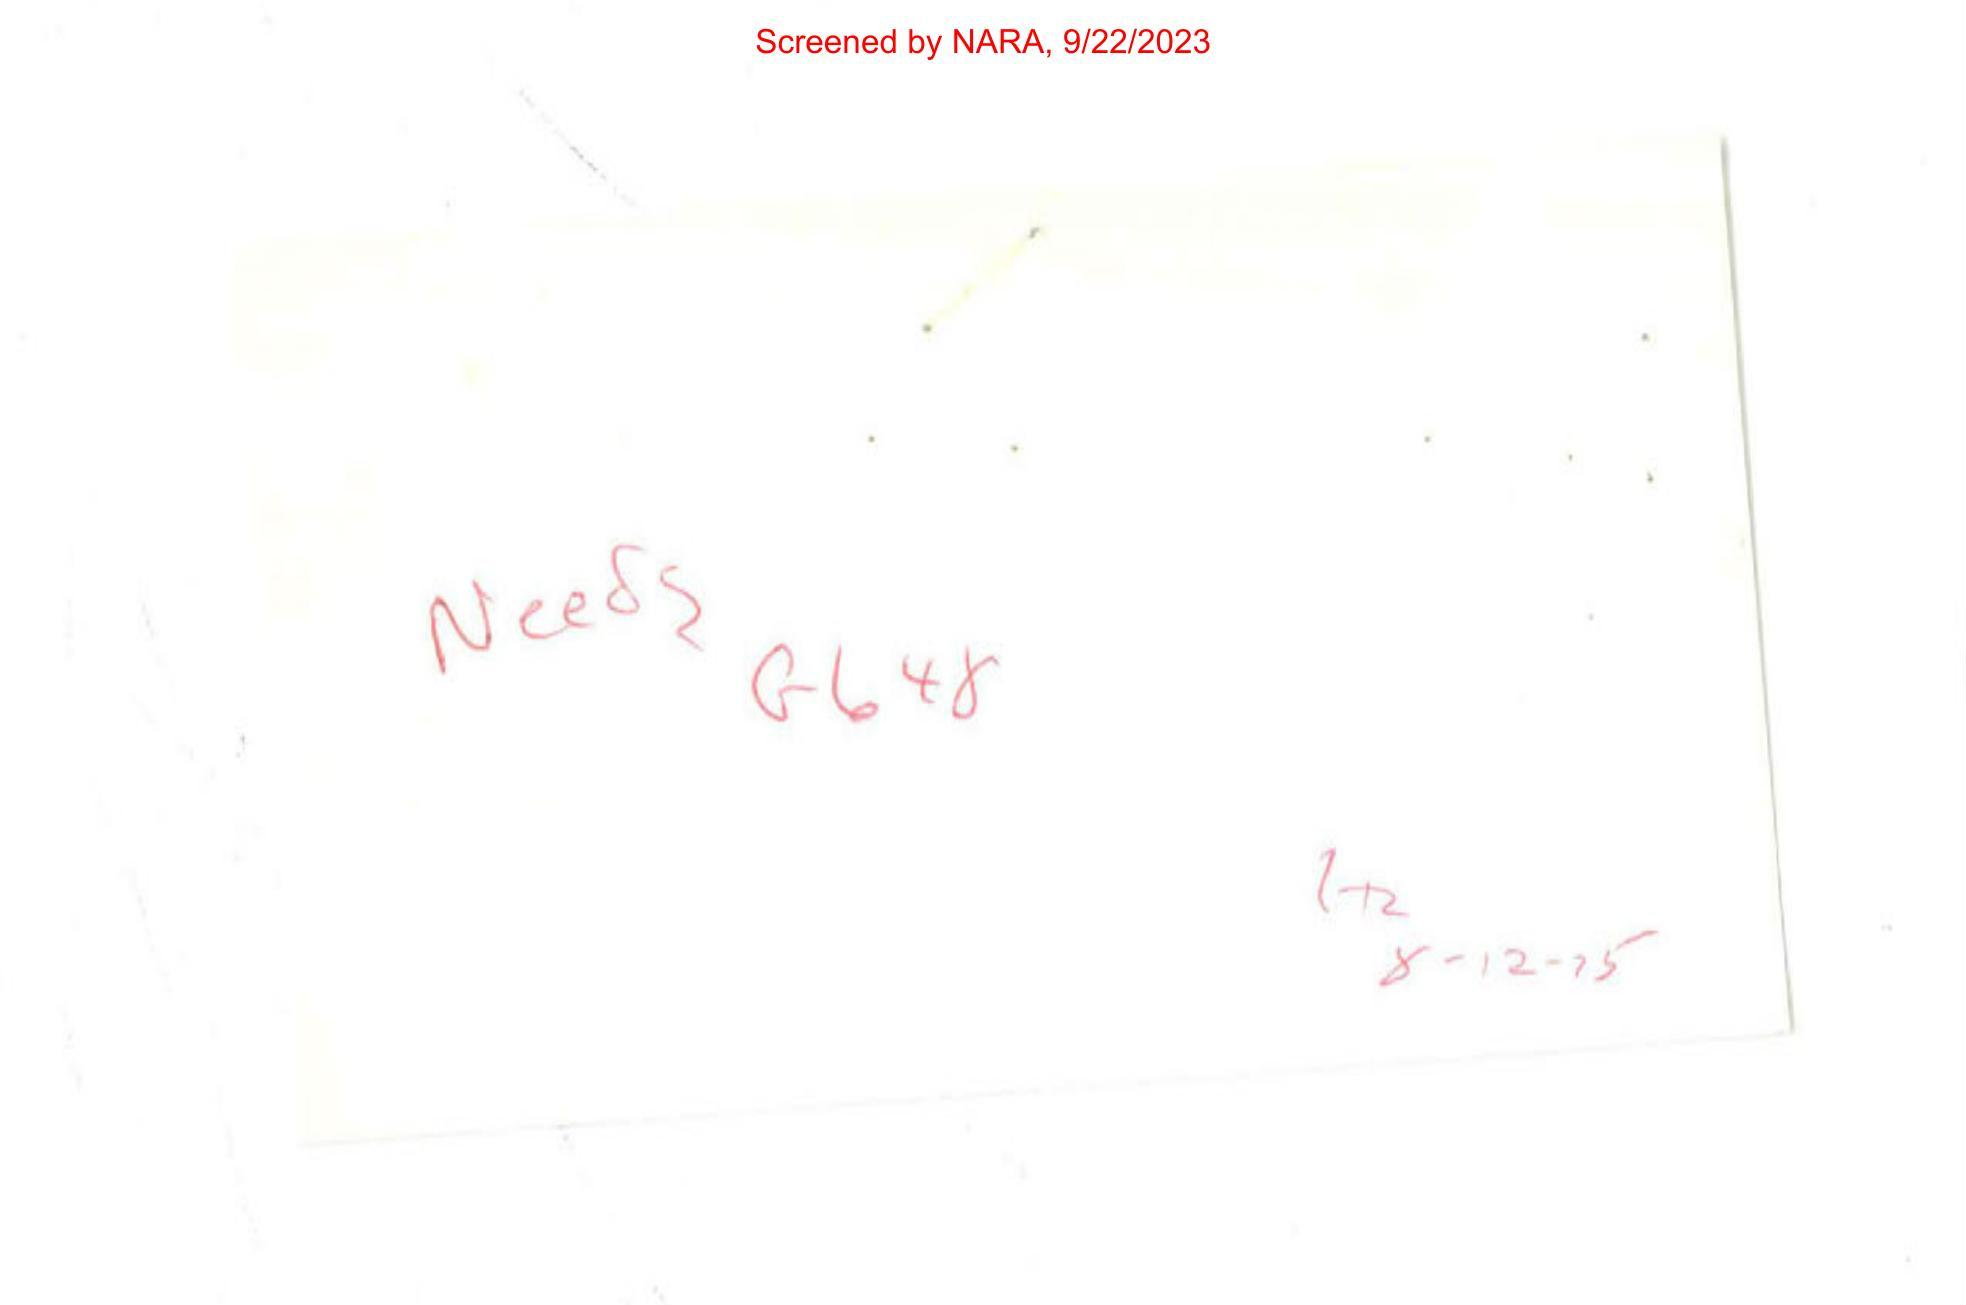 Screened by NARA, 9/22/2023
Needs
G648
8-12-75